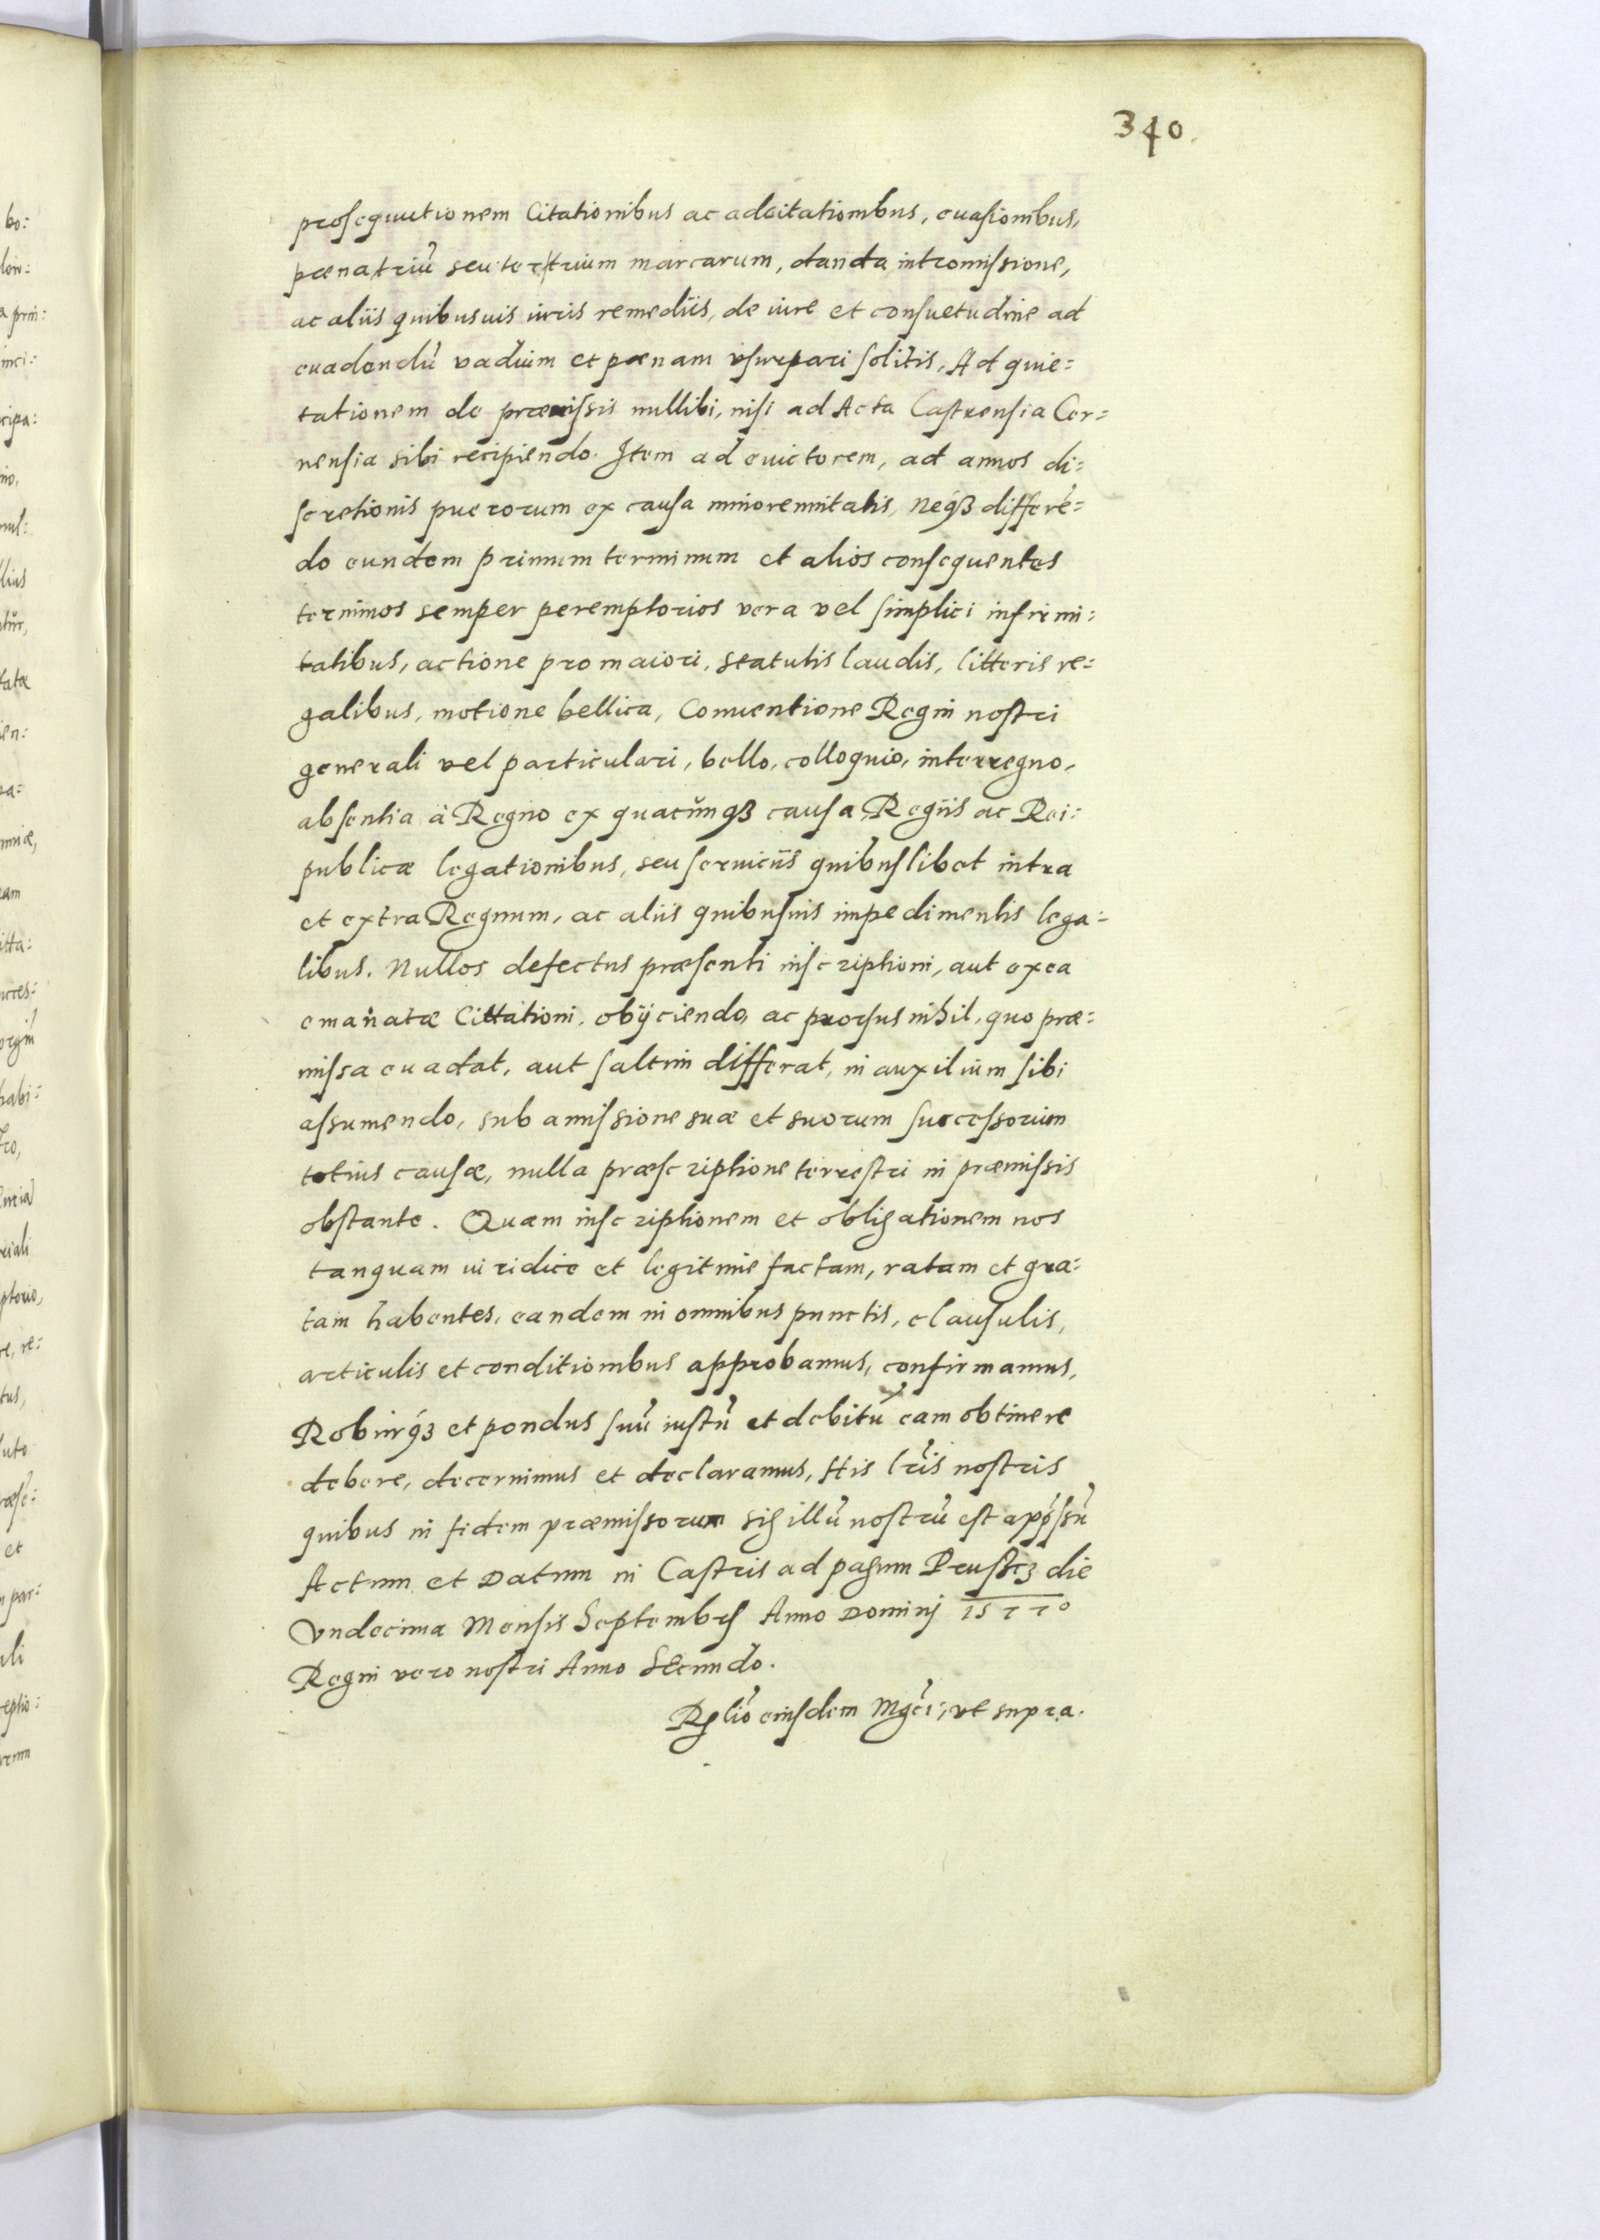 340.
prosequutionem Citationibus ac adcitationibus, euasionibus,
pœna triũ seu ter trium marcarum, danda intromissione,
ac aliis quibusuis iuris remediis, de iure et consuetudine ad
euadendũ vadium et pœnam vsurpari solitis, Ad quie=
tationem de præmissis nullibi, nisi ad Acta Castrensia Cer=
nensia sibi recipiendo. Item ad euictorem, ad annos di=
scretionis puerorum ex causa minorennitatis, neqʒ differẽ=
do eundem primum terminum et alios consequentes
terminos semper peremptorios vera vel simplici infirmi=
tatibus, actione pro maiori, statutis laudis, litteris re=
galibus, motione bellica, Conuentione Regni nostri
generali vel particulari, bello, colloquio, interregno,
absentia à Regno ex quacũnqʒ causa, Regiis ac Rei=
publicæ legationibus, seu seruiciis quibuslibet intra
et extra Regnum, ac aliis quibusuis impedimentis lega=
libus. Nullos defectus præsenti inscriptioni, aut ex ea
emanatæ Cittationi, obijciendo, ac prorsus nihil, quo præ=
missa euadat, aut saltim differat, in auxilium sibi
assumendo, sub amissione suæ et suorum successorum
totius causæ, nulla præscriptione terrestri in præmissis
obstante. Quam inscriptionem et obligationem nos
tanquam iuridice et legitime factam, ratam et gra=
tam habentes, eandem in omnibus punctis, clausulis,
articulis et conditionibus approbamus, confirmamus,
Roburqʒ et pondus suũ iustũ et debitũ eam obtinere
debere, decernimus et declaramus, His lr̃is nostris
quibus in fidem præmissorum sigillũ nostrũ est app̃ssũ
Actum et Datum in Castris ad pagum Prustcʒ die
Vndecima Mensis Septembris Anno Dominj 1577o
Regni vero nostri Anno Secundo.
Rel̃io eiusdem Mg̃ci, vt supra.